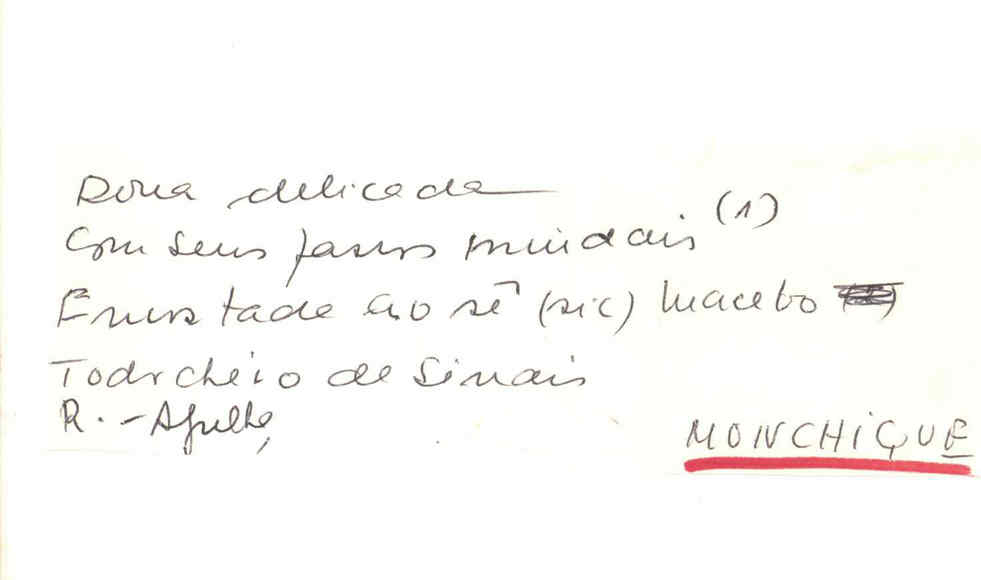 Dona delicada
Com seus passos miudais (1)
Encostada ao sê (sic) macebo
Todo cheio de Sinais
R. - Agulha
MONCHIQUE